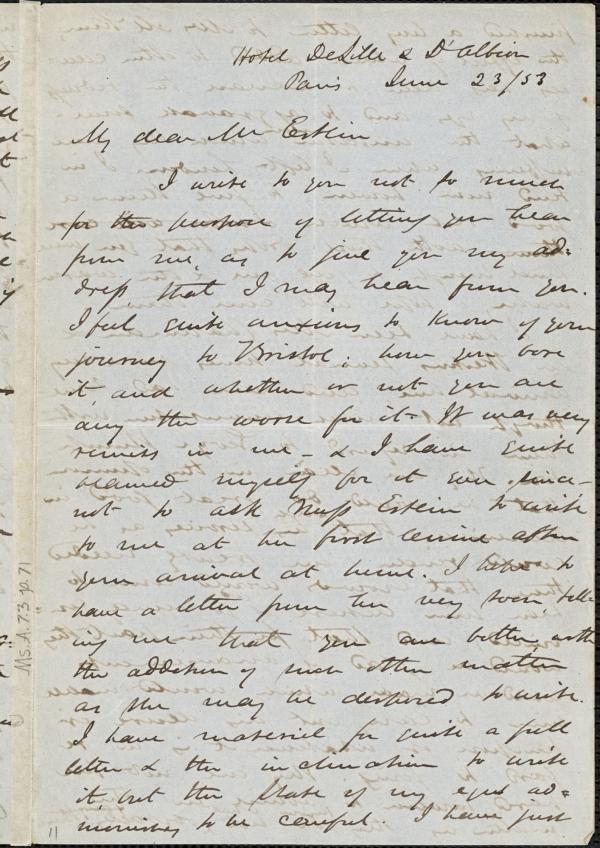 Hotel DeLille & D'Albion
Paris June 23/53
My dear Mr Estlin
I write to you not so much
for the purpose of letting you hear
from me, as to give you my ad=
dress, that I may hear from you.
I feel quite anxious to know of your
journey to Bristol; how you bore
it, and whether or not you are
any the worse for it. It was very
remiss in me - & I have quite
blamed myself for it ever since -
not to ask Miss Estlin to write
to me at her first leisure after
your arrival at home. I hope to
have a letter from her very soon tell
ing me that you are better, with
the addition of such other matter
as she may be disposed to write.
I have material for quite a full
letter & the inclination to write
it, but the state of my eyes ad=
monishes to be careful. I have just
Ms.A.7.3 p.71
11